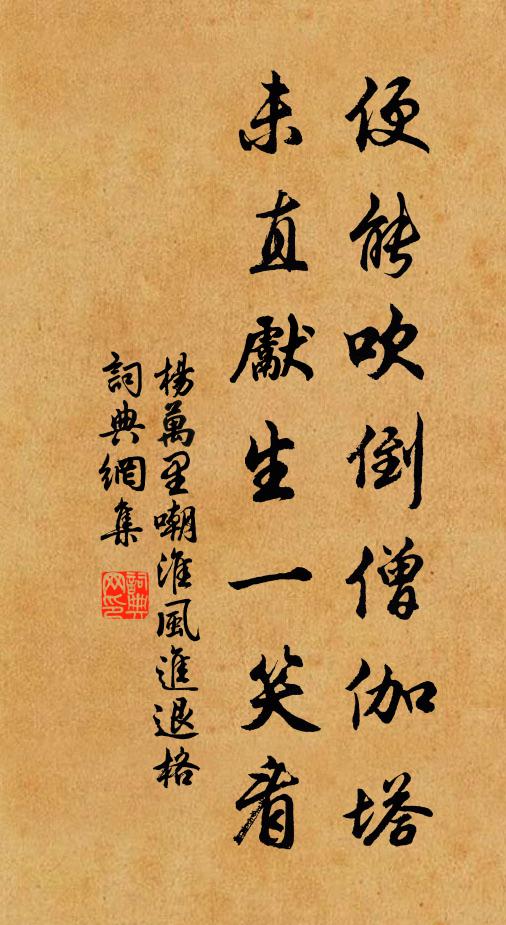 便能吹倒僧伽塔
未直獻生一笑看
楊萬里嘲淮風進退格
詞典網集
詞典网印